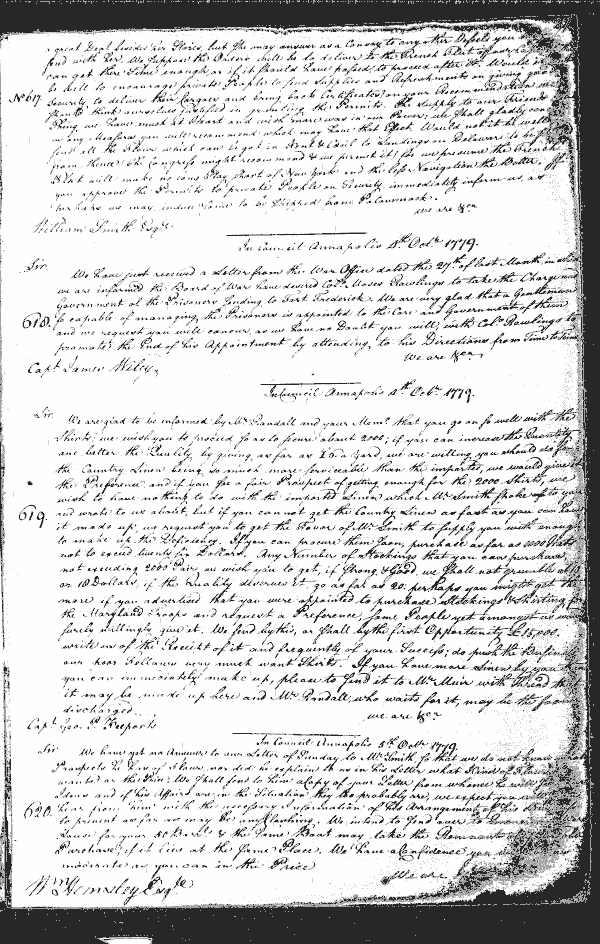 a great Deal besides her Stores, but She may answer as a Convoy to any other Vessels you
send with her. We suppose the Orders will be to deliver to the French Fleet
can get there Time enough, or if it should have passed, to proceed after it. Would it
be well to encourage private People to send Supplies and Refreshments on giving good
No 617. Security, to deliver their Cargoes and bring back Certificates, on your Recommendation we
should think ourselves justified in granting the Permits. The Supply to our Friends
Thing we have much at Heart and wish more was in our Power; we shall gladly
in any Measures you will recommend which may have that Effect. Would not it be well
send all the Flour which can be got in Kent & Cecil to Landings on Delaware to be
from thence; the Congress might recommend & we permit it; for we presume the French
Fleet will make no long Stay short of New York and the less Navigation the Better. If
you approve the Permits to private People on Security, immediately inform us, as
perhaps we may induce some to be shipped from Patowmack.
We are &ca
William Smith Esqr
In Council Annapolis 4th Octr 1779.
Sir
We have just received a Letter from the War Office dated the 27th of last Month, in which
we are informed the Board of War have desired Colo Moses Rawlings to take the Charge and
Government of the Prisoners Guiding to Fort Frederick. We are very glad that a Gentleman
618. so capable of managing, the Prisoners is appointed to the Care and Government of them
and we request you will concur, as we have no Doubt you will, with Colo Rawlings to
promote the End of his Appointment by attending, to his Directions from Time to Time.
We are &ca
Capt James Wiley.
In Council Annapolis 4th Octr 1779.
Sir
We are glad to be informed by Mr Randall and your Memo that you go on so well with the
Shirts; we wish you to proceed so as to secure about 2000; if you can increase the Quantity
and better the Quality, by giving as far as £6 a Yard, we are willing you should do so
the Country Linen being so much more serviceable than the imported, we would give it
the Preference and if you see a fair Prospect of getting enough for the 2000 Shirts, we
wish to have nothing to do with the imported Linen which Mr Smith spoke of to you
619. and wrote to us about, but if you cannot get the Country Linen as fast as you can have
it made up, we request you to get the Favor of Mr Smith to supply you with enough
to make up the Deficiency. If you can procure them soon, purchase as far as 1000 Hats
not to exceed twenty six Dollars. Any Number of Stockings that you can purchase,
not exceeding 2000 Pair, we wish you to get, if Strong & Good, we shall not grumble at 15
or 18 Dollars, if the Quality deserves it, go as far as 20; perhaps you might get the
more if you advertised that you were appointed to purchase Stockings & Shirting, for
the Maryland Troops and request a Preference, some People yet amongst us would
surely willingly give it. We send by this, or shall by the first Opportunity £15,000.
write us of the Receipt of it and frequently of your Success; do push the Business
our poor Fellows very much want Shirts. If you have more Linen by you than
you can immediately make up, please to send it to Mr Muir with Thread that
it may be made up here and Mr Randall who waits for it, may be the sooner
discharged.
we are &ca
Capt Geo. P. Keeports
In Council Annapolis 5th Octr 1779.
Sir
We have yet no Answer to our Letter of Sunday to Mr Smith so that we do not know
Prospects he has of Flour, nor did he explain to us in his Letter what Kind of
wanted or the Price. We shall send to him a Copy of your Letter from whence he will
Ideas and if his Affairs are in the Situation they probably are, we expect you will
620. hear from him with the necessary Information of his Arrangement of his Business
to prevent as far as may be any Clashing. We intend to send over to
House for your 80 Barrls & the same Boat may take the Remnant
Purchase, if it lies at the same Place. We have a Confidence you will be as
moderate as you can in the Price
We are
Wm Hemsley Esqr